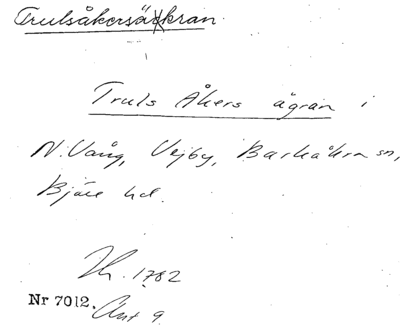 Trulsåkersäkran.
Truls Åkers ägran i
N. Vång, Vejby, Barkåkra sn,
Bjäre hd.
Th. 1782
Nr 7012. Ant 9